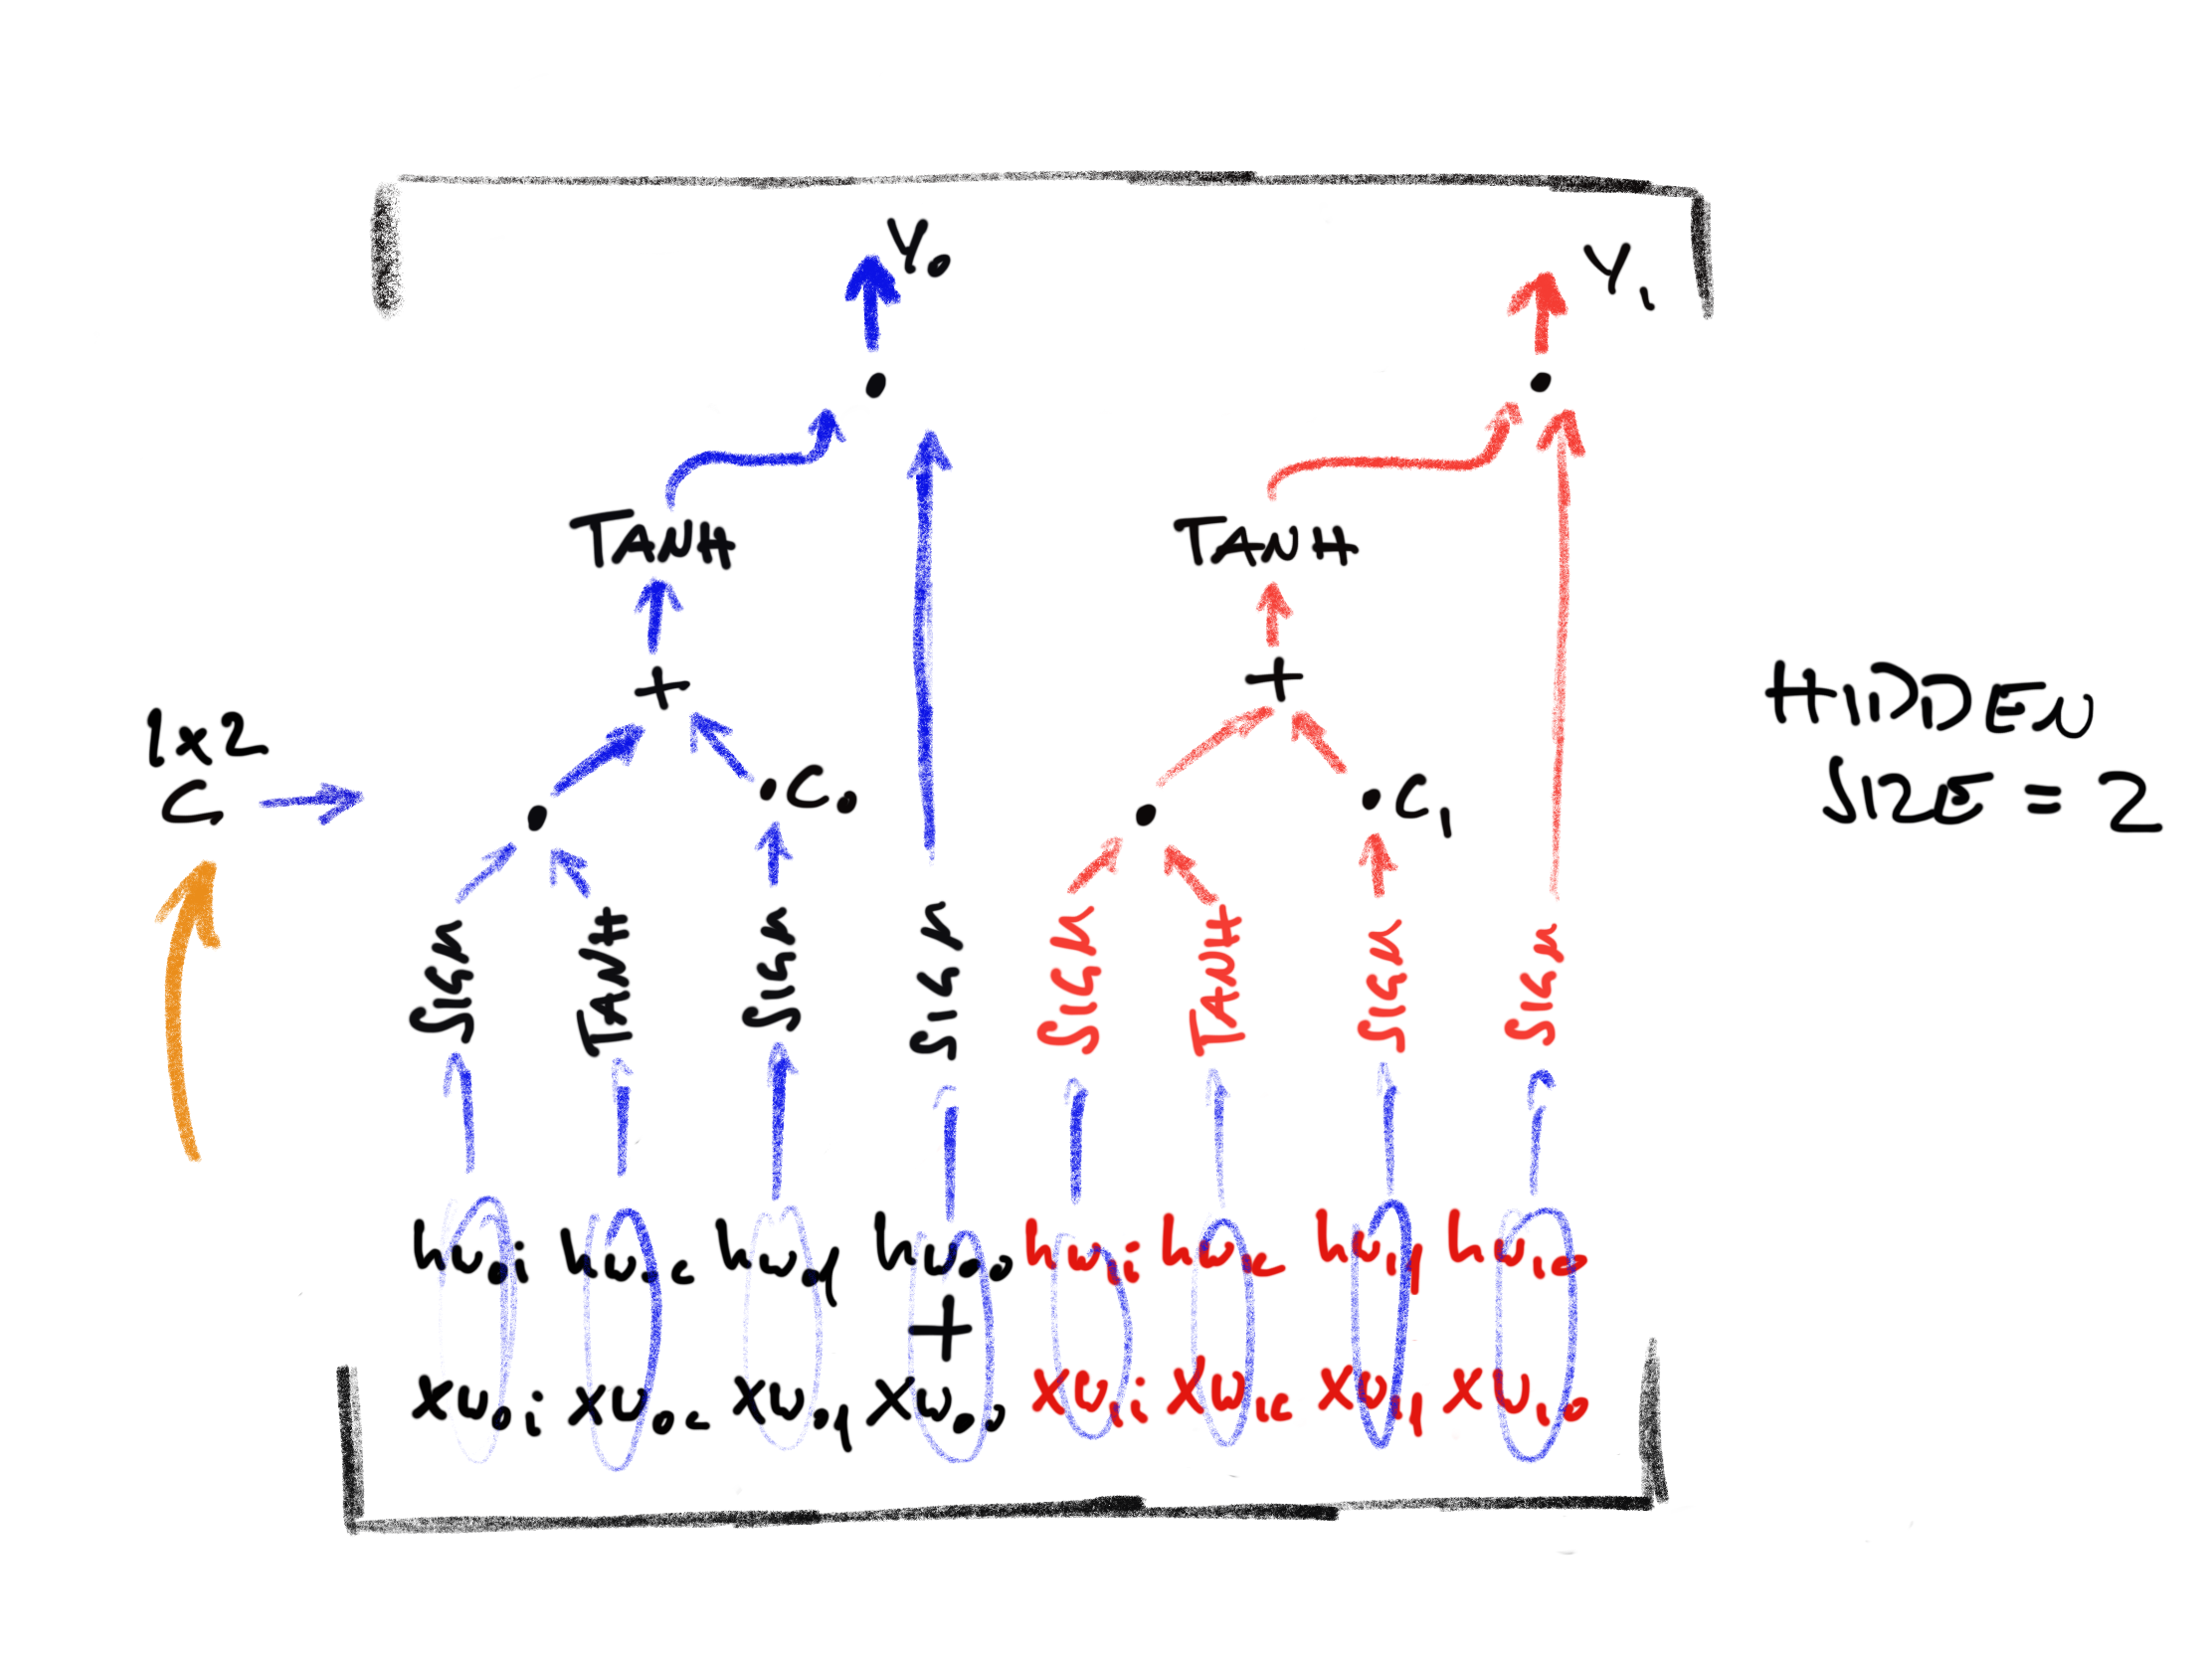 Y₀ Y₁
.
.
TANH TANH
+ +
HIDDEN
SIZE = 2
1x2
C
. .C₀ . .C₁
SIGM TANH SIGM SIGM SIGM TANH SIGM SIGM
hw₀i hw₀c hw₀f hw₀₀ hw₁i hw₁c hw₁f hw₁₀
+
xw₀i xw₀c xw₀f xw₀₀ xw₁i xw₁c xw₁f xw₁₀